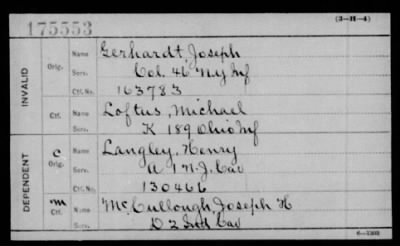 175553
(3—H—4)
INVALID
Orig.
Name Gerhardt, Joseph
Serv. Col. 46 N.Y. Inf
Ctf. No. 163783
Ctf.
Name Loftus, Michael
Serv. K 189 Ohio Inf
DEPENDENT
C
Orig.
Name Langley, Henry
Serv. A 1 N.J. Cav
Ctf. No. 130466
m
Ctf.
Name McCullough, Joseph H
Serv. D 2 Cav
6—3303